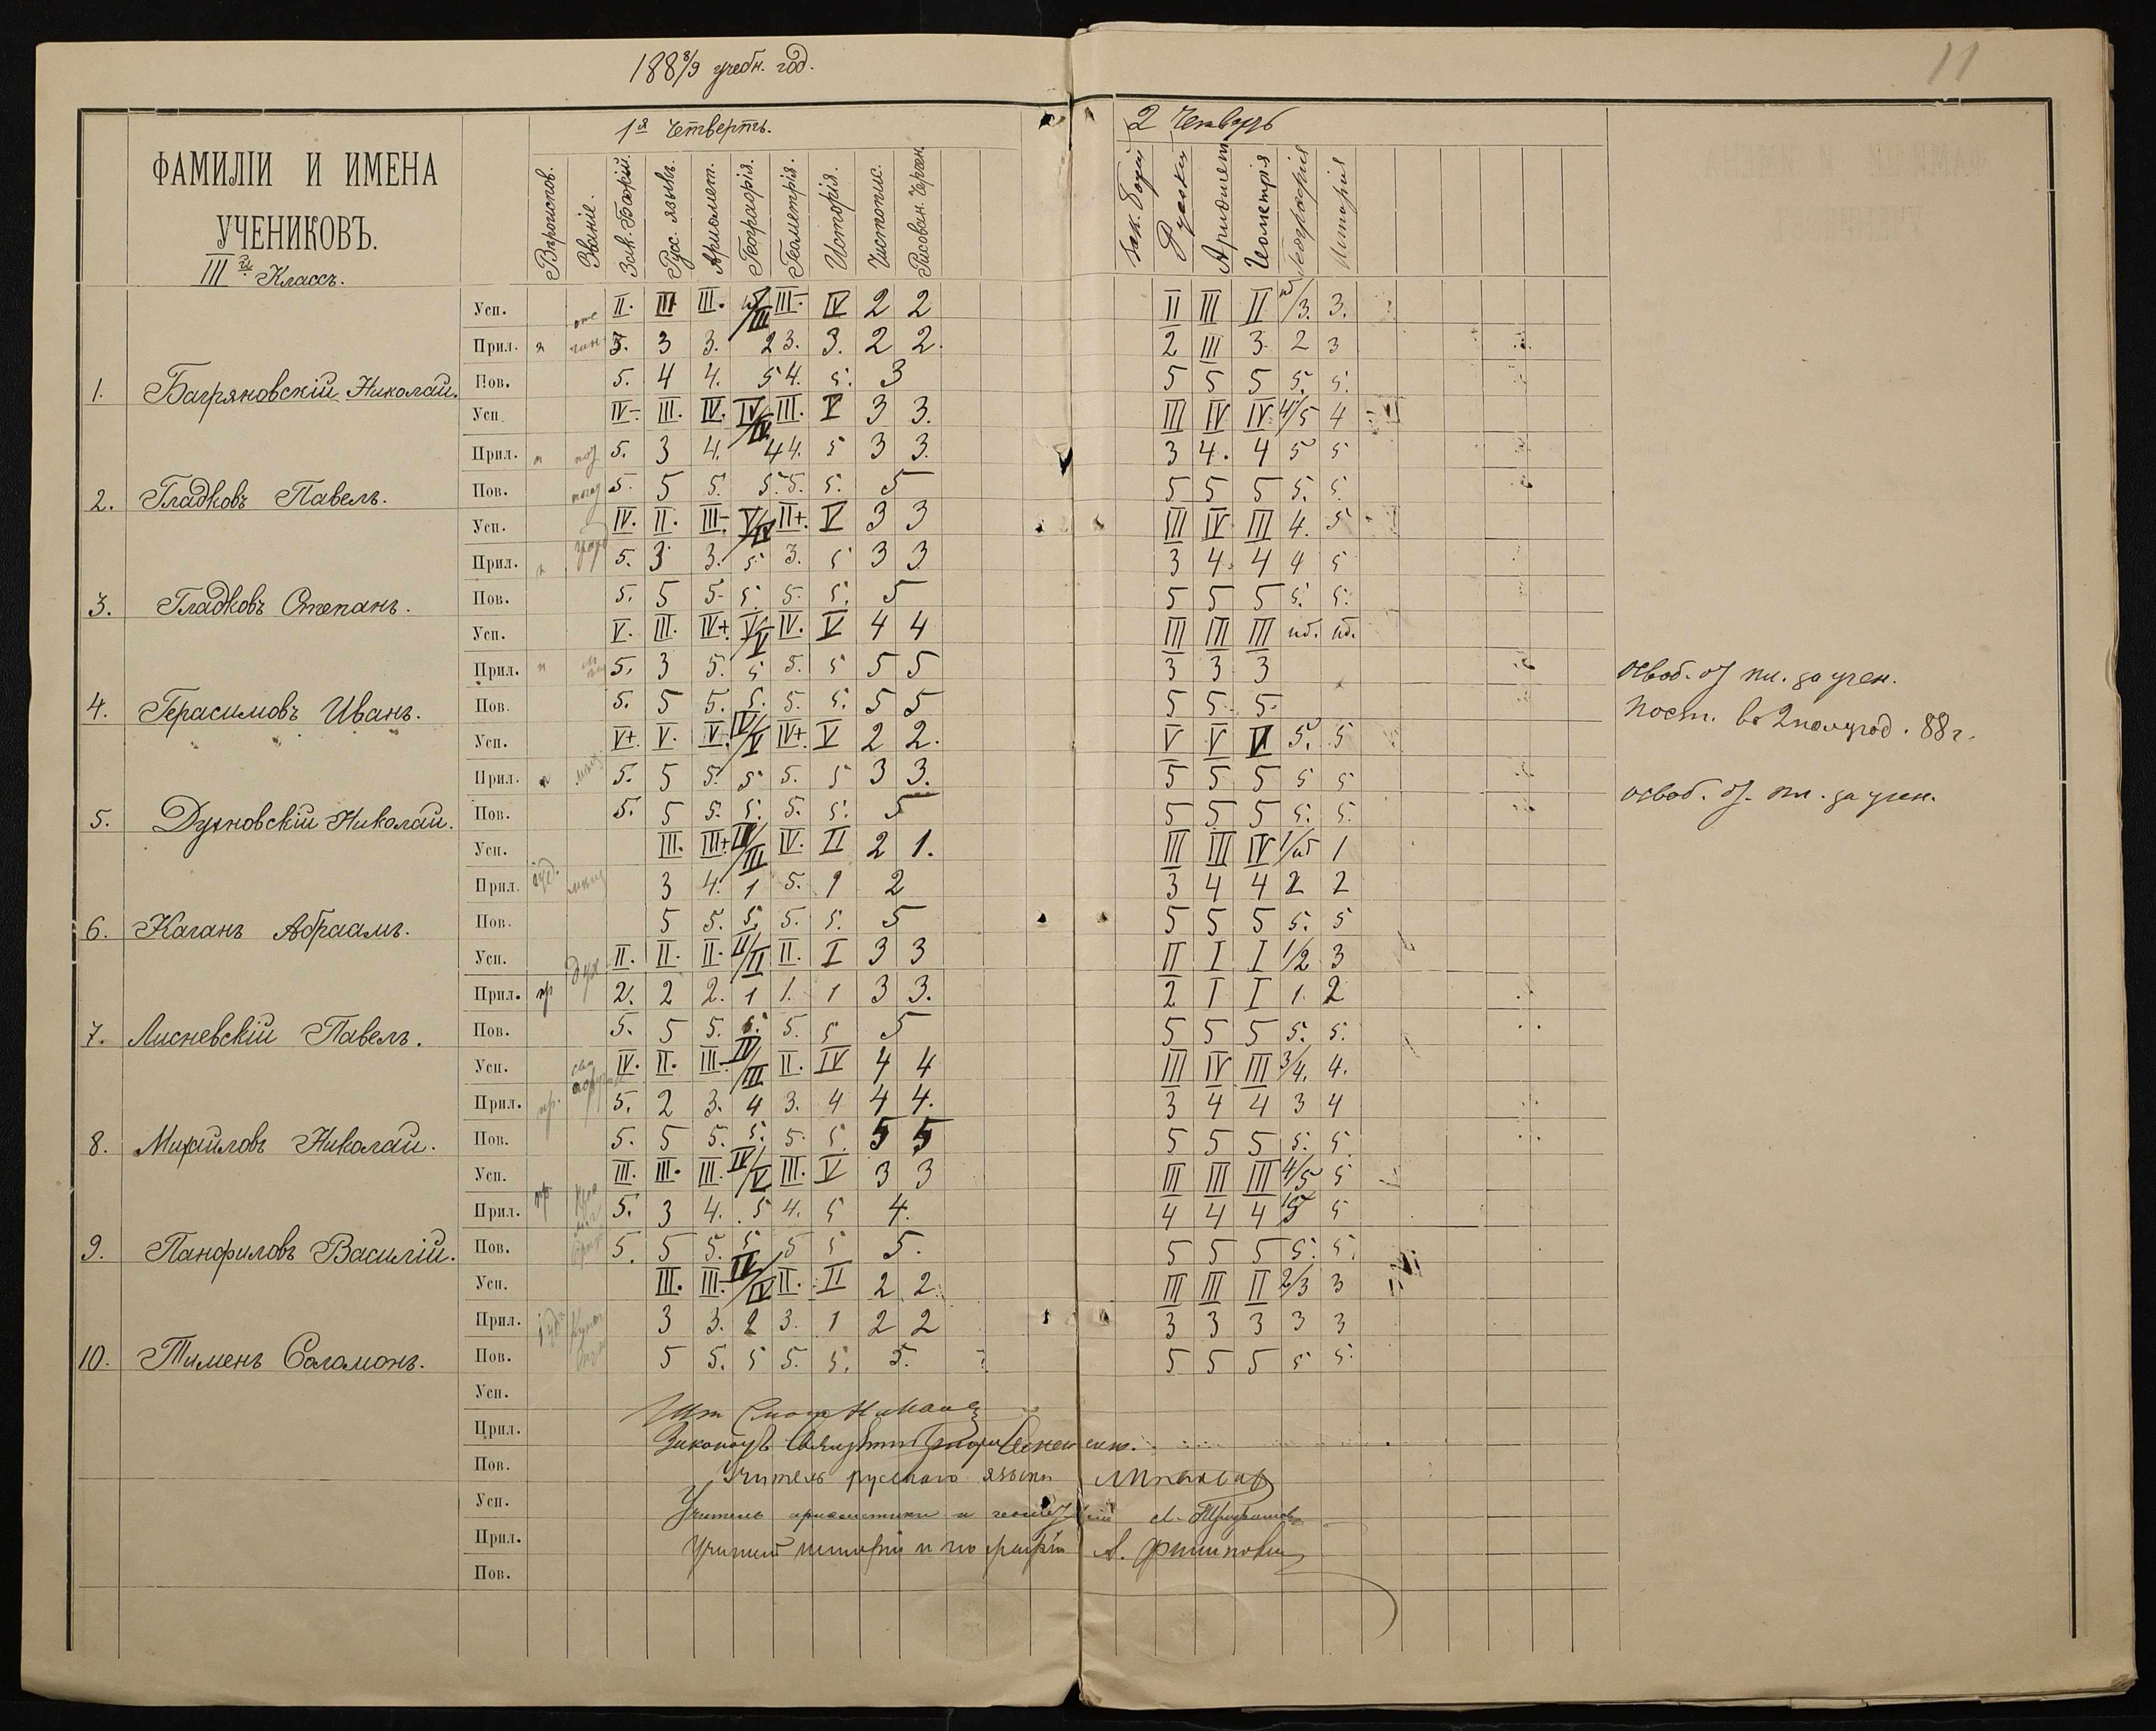 188 8/9 учебн. год.
11
1я Четверть.
2 Четверть
ФАМИЛІИ И ИМЕНА
УЧЕНИКОВЪ.
III й Классъ.
Вѣроиспов. Званіе. Зак. Божій. Русс. языкъ. Ариѳмет. Географія. Геометрія. Исторія. Чистопис. Рисован. Черчен.
Зак. Божій Русскій Ариѳмет Геометрія Географія Исторія
Усп. II. III III. III- IV 2 2 II III II 3. 3.
Прил. 3. 3 3. 2 3. 3. 2 2. 2 III 3. 2 3
1. Багряновскій Николай. Пов. 5. 4 4. 5 4. 5. 3 5 5 5 5. 5.
Усп. IV- III. IV. IV/IV III. V 3 3. III IV IV 4/5 4
Прил. 5. 3 4. 4 4. 5 3 3. 3 4. 4 5 5
2. Гладковъ Павелъ. Пов. 5. 5 5. 5. 5. 5. 5 5 5 5 5. 5.
Усп. IV. II. III- V/IV II+. V 3 3 III IV III 4. 5
Прил. 5. 3 3. 5 3. 5 3 3 3 4. 4 4 5
3. Гладковъ Степанъ. Пов. 5. 5 5. 5. 5. 5. 5 5 5 5 5. 5.
Усп. V. III. IV+. V-/V IV. V 4 4 III III III нб. нб.
Прил. 5. 3 5. 5 5. 5 5 5 3 3 3
освоб. от пл. за учен.
4. Герасимовъ Иванъ. Пов. 5. 5 5. 5. 5. 5. 5 5 5 5 5
Пост. въ 2 полугод. 88 г.
Усп. V+. V. V. IV/V IV+. V 2 2. V V V 5. 5
Прил. 5. 5 5. 5 5. 5 3 3. 5 5 5 5 5
освоб. от пл. за учен.
5. Духновскій Николай. Пов. 5. 5 5. 5. 5. 5. 5 5 5 5 5. 5.
Усп. III. III+ II/III IV. II 2 1. III III IV 1/нб 1
Прил. 3 4. 1 5. 1 2 3 4 4 2 2
6. Каганъ Абраамъ. Пов. 5 5. 5. 5. 5. 5 5 5 5 5. 5
Усп. дух II. II. II. II/II II. I 3 3 II I I 1/2 3
Прил. пр 2. 2 2. 1 1. 1 3 3. 2 I I 1. 2
7. Лисневскій Павелъ. Пов. 5. 5 5. 5. 5. 5 5 5 5 5 5. 5.
Усп. IV. II. III- IV/III II. IV 4 4 III IV III 3/4. 4.
Прил. пр. 5. 2 3. 4 3. 4 4 4. 3 4 4 3 4
8. Михайловъ Николай. Пов. 5. 5 5. 5. 5. 5. 5 5 5 5 5 5. 5
Усп. III. III. III. IV/V III. V 3 3 III III III 4/5 5
Прил. пр 5. 3 4. 5 4. 5 4. 4 4 4 5 5
9. Панфиловъ Василій. Пов. 5. 5 5. 5. 5 5 5. 5 5 5 5. 5.
Усп. III. III- II/IV II. II 2 2. III III II 2/3 3
Прил. 3 3. 2 3. 1 2 2 3 3 3 3 3
10. Тименъ Соломонъ. Пов. 5 5. 5 5. 5. 5. 5 5 5 5 5.
Усп.
Прил.
Законоуч. Священникъ
Пов.
Учитель русскаго языка
Усп.
Учитель ариѳметики и геометріи
Прил.
Учитель исторіи и географіи А.
Пов.